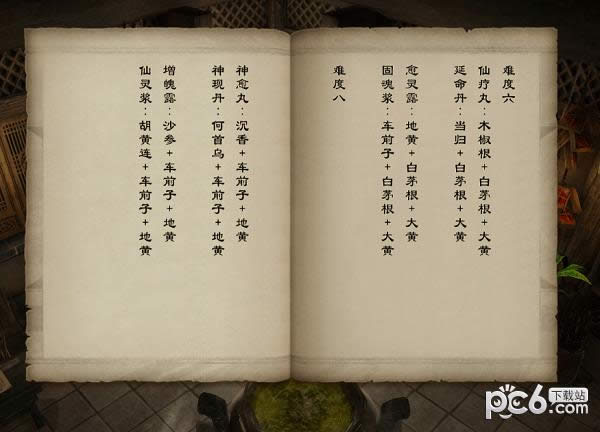 难度六
仙疗丸：木椒根+白茅根+大黄
延命丹：当归+白茅根+大黄
愈灵露：地黄+白茅根+大黄
固魂浆：车前子+白茅根+大黄
难度八
神愈丸：沉香+车前子+地黄
神现丹：何首乌+车前子+地黄
增魄露：沙参+车前子+地黄
仙灵浆：胡黄连+车前子+地黄
pc6下载站
.com